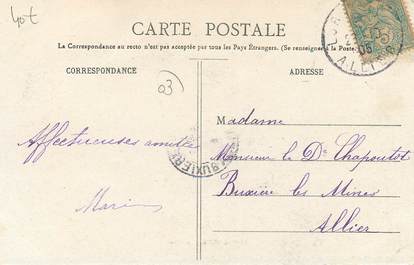 CARTE POSTALE
La Correspondance au recto n'est pas acceptée par tous les Pays Étrangers. (Se renseigner à la Poste.)
CORRESPONDANCE
ADRESSE
03)
Madame
Affectueuses amitiés
Monsieur le Dr Chapoutot
Buxière les Mines
Allier
BUXIERE
ALLIER
05